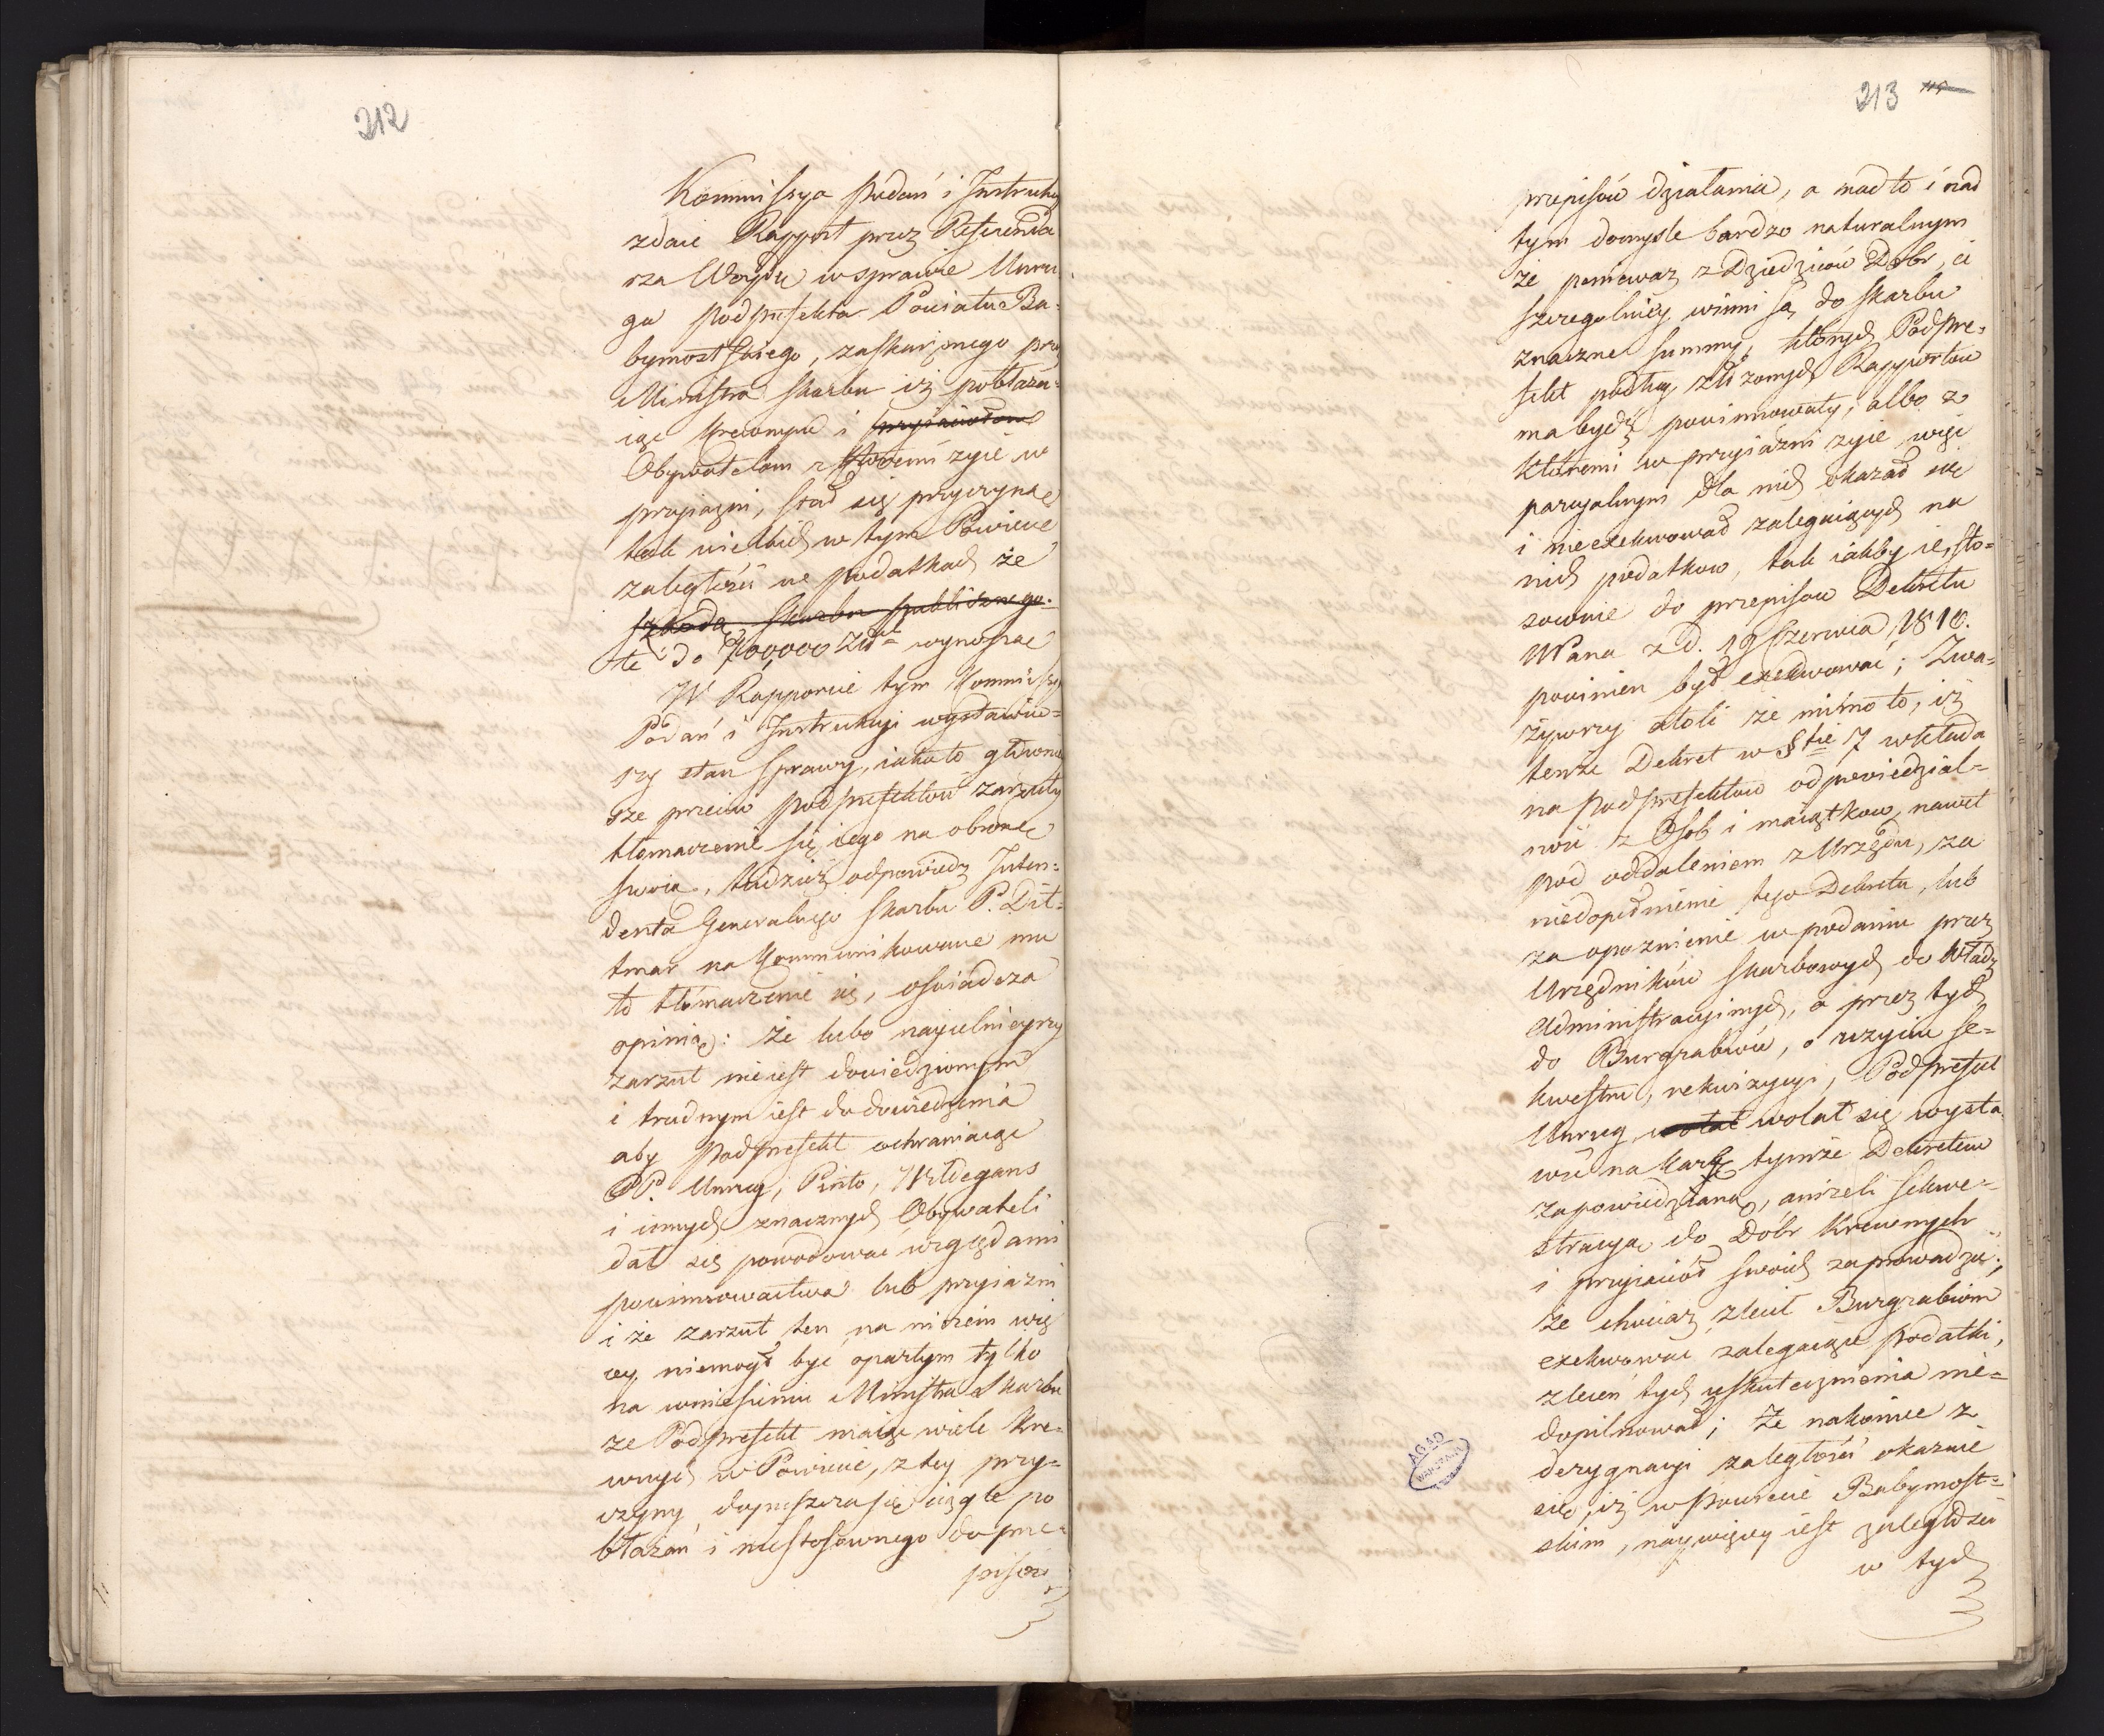 212
Kommissya Podań i Instrukcy
zdaie Rapport przez Referenda
rza Woydę w sprawie Unru
ga podprefekta Powiatu Ba-
bymostskiego, zaskarżonego prze
Ministra Skarbu iż pobłaża-
iąc Krewnym i przyiaciołom
Obywatelom z któremi żyie w
przyiaźni, stał się przyczyną
tak wielkich w tym Powiecie
zaległości w podatkach że
szkodą Skarbu publicznego.
te do 700000 Złłt wynoszą
W Rapporcie tym Kommissya
Podań i Instrukcyi wystawiw-
szy stan sprawy, iakoto główniey
sze przeciw podprefektowi zarzuty
tłomaczenie się iego na obronę
swoią, tudzież odpowiedź Inten-
denta Generalnego Skarbu P. Dit-
tmar na kommunikowane mu
to tłómaczenie się, oświadcza
opinią: że lubo naycelnieyszy
zarzut nieiest dowiedzionym
i trudnym iest do dowiedzenia
aby podprefekt ochraniaiąc
PP. Unrug, Pinto, Wildegans
i innych znacznych Obywateli
dał się powodować względami
powinowactwa lub przyiaźni
i że zarzut ten na niczem wię
cey niemógł być opartym tylko
na wniesieniu Ministra Skarbu
że Podprefekt maiąc wiele Kre-
wnych w Powiecie, z tey przy-
czyny dopuszcza się ciągle po
błażań i niestosownego do prze-
pisów
213
przepisów działania, a nadto i nad
tym domysle bardzo naturalnym
że ponieważ z Dziedziców Dóbr, ci
szczegolniey winni są do Skarbu
znaczne summy, których Podpre-
fekt podług złożonych Rapportow
ma bydź powinnowaty, albo z
któremi w przyiaźni żyie więc
parcyalnym dla nich okazał się
i nieexekwował zalegaiących na
nich podatkow, tak iakby ie, sto-
sownie do przepisow Dekretu
WPana z d. 19 Czerwca 1810.
powinien był exekwować; Zwa-
żywszy atoli że mimo to, iż
tenże Dekret w § cie 7 wkłada
na podprefektów odpowiedzial-
ność z Osob i maiątkow, nawet
pod oddaleniem z Urzędu, za
niedopełnienie tego Dekretu, lub
za opoznienie w podaniu przez
Urzędników skarbowych do Władz
Administracyinych, a przez tych
do Burgrabiów, o użyciu se-
kwestru, rekwizycyi, Podprefekt
Unrug wolał wolał się wysta-
wić na karę tymże Dekretem
zapowiedzianą, aniżeli sekwe-
stracyą do Dóbr Krewnych
i przyiaciół swoich zaprowadzić;
że chociaż zlecił Burgrabiom
exekwować zalegaiące podatki,
zleceń tych uskutecznienia nie-
dopilnował; że nakoniec z
dezygnacyi zaległości okazuie
się, iż w Powiecie Babymost-
skim, naywięcey iest zaległości
w tych
AGAD
WARSZAWA